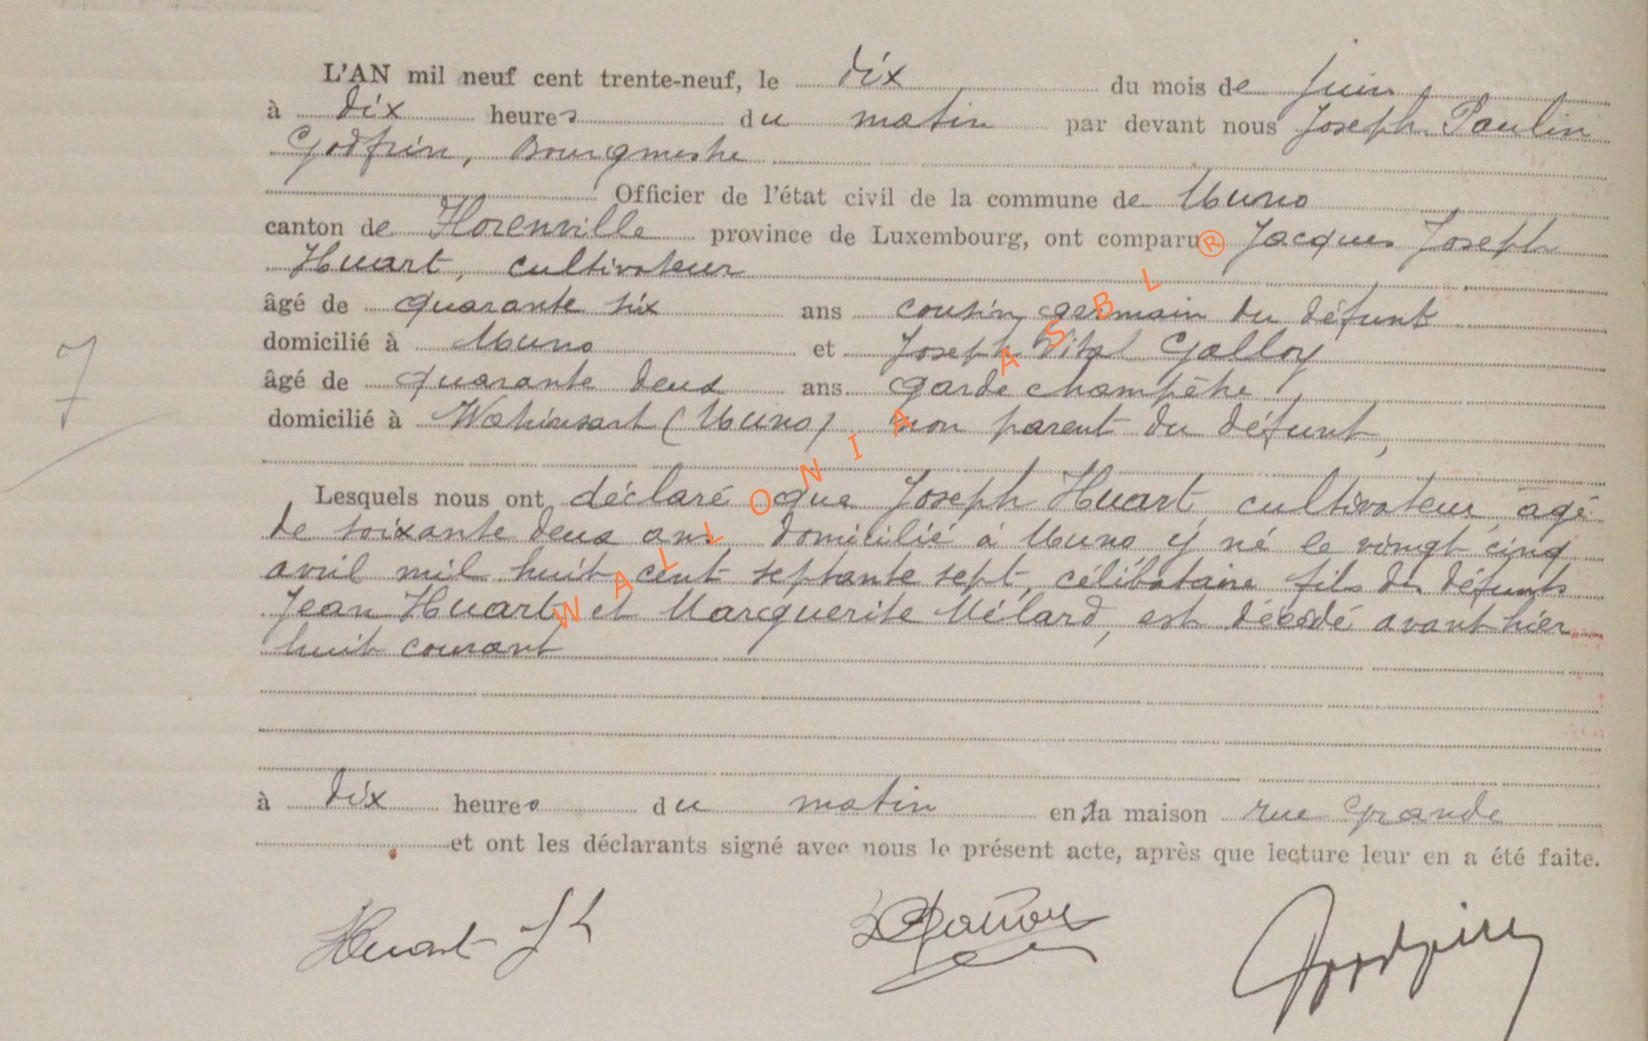 L'AN mil neuf cent trente-neuf, le dix du mois de Juin
à dix heures du matin par devant nous Joseph Paulin
Godfrin, Bourgmestre
Officier de l'état civil de la commune de Muno
canton de Florenville province de Luxembourg, ont comparu Jacques Joseph
Huart, cultivateur
âgé de quarante six ans cousin germain du défunt
domicilié à Muno et Joseph Vital Galloy
âgé de quarante deux ans garde champêtre
domicilié à Watrinsart (Muno) non parent du défunt,
7
Lesquels nous ont déclaré que Joseph Huart, cultivateur, âgé
de soixante deux ans, domicilié à Muno, y né le vingt cinq
avril mil huit cent septante sept, célibataire fils des défunts
Jean Huart et Marguerite Mélard, est décédé avant hier
huit courant
à dix heures du matin en la maison rue Grande
et ont les déclarants signé avec nous le présent acte, après que lecture leur en a été faite.
Huart Jh Godfrin
WALLONIA ASBL ®